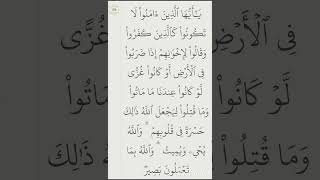 يَـٰٓأَيُّهَا ٱلَّذِينَ ءَامَنُوا۟ لَا
تَكُونُوا۟ كَٱلَّذِينَ كَفَرُوا۟
وَقَالُوا۟ لِإِخْوَٰنِهِمْ إِذَا ضَرَبُوا۟
فِى ٱلْأَرْضِ أَوْ كَانُوا۟ غُزًّى
لَّوْ كَانُوا۟ عِندَنَا مَا مَاتُوا۟
وَمَا قُتِلُوا۟ لِيَجْعَلَ ٱللَّهُ ذَٰلِكَ
حَسْرَةً فِى قُلُوبِهِمْ ۗ وَٱللَّهُ
يُحْىِۦ وَيُمِيتُ ۗ وَٱللَّهُ بِمَا
تَعْمَلُونَ بَصِيرٌ